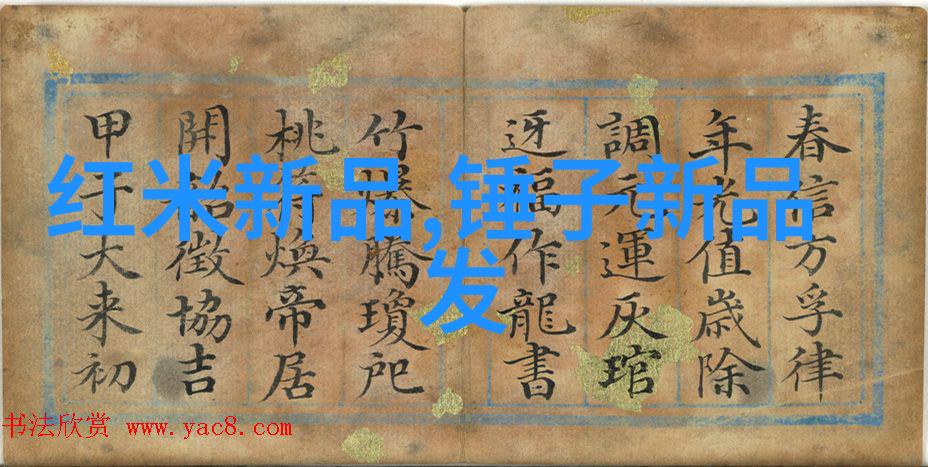 红米新品,锤子新品
发
春信方孚律
年光值歲除
調元運灰琯
迓福作龍書
竹爆騰瓊
桃符煥帝居
開徵協吉
甲子大来初
书法欣赏 www.yac8.com